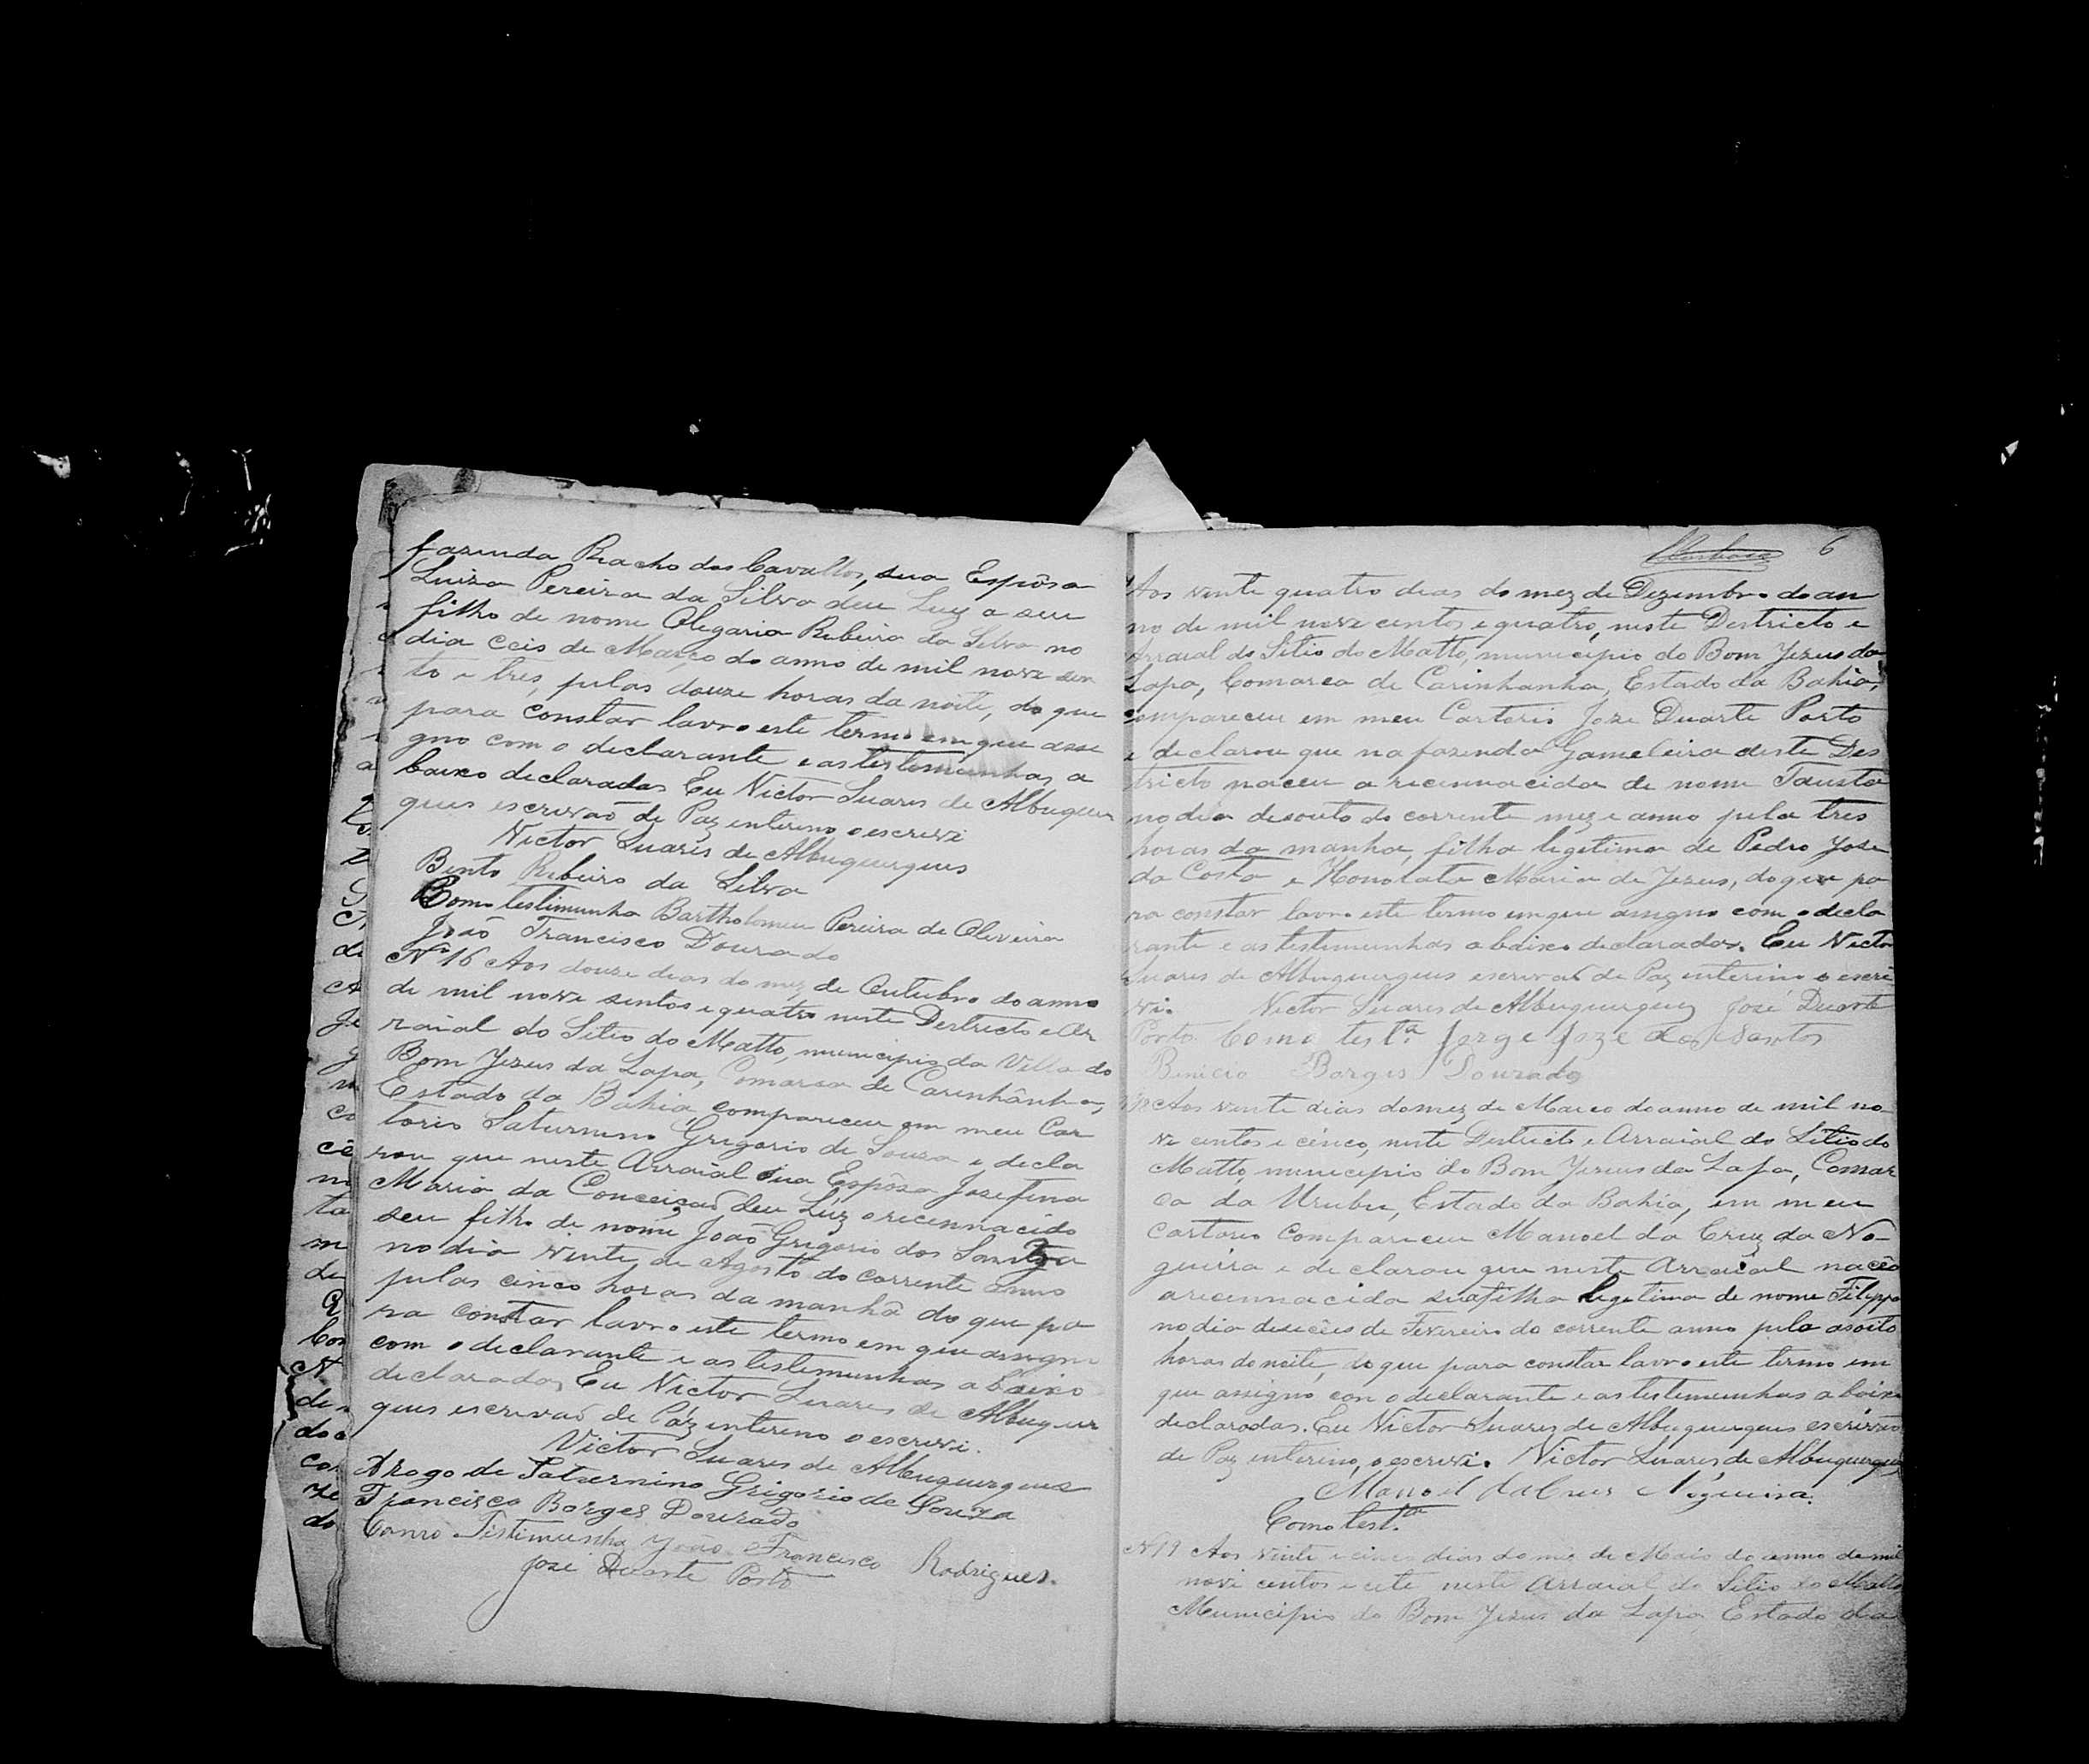 fazenda Riacho dos Cavallos, sua Espôsa
Luiza Pereira da Silva deu Luz a seu
filho de nome Olegario Ribeiro da Silva no
dia ceis de Março do anno de mil nove cen
to e tres, pelas douze horas da noite, do que
para constar lavro este termo em que assi
gno com o declarante e as testemunhas a
baixo declaradas Eu Victor Suares de Albuquer
ques escrivaõ de Paz enterino o escrevi
Victor Suares de Albuquerques
Bento Ribeiro da Silva
Como testimunha Bartholomeu Pereira de Oliveira
João Francisco Dourado
Nº 16 Aos douze dias do mez de Outubro do anno
de mil nove sentos e quatro neste Destricto e Ar
raial do Sitio do Matto, municipio da Villa do
Bom Jezus da Lapa, Comarca de Carinhânha,
Estado da Bahia, compareceu em meu Car
torio Saturnino Grigorio de Souza e decla
rou que neste Arraial sua Espôsa Josefina
Maria da Conceizaõ deu Lúz o recennacido
seu filho de nome João Grigorio dos Santos
no dia vinte de Agosto do corrente anno
pelas cinco horas da manhã do que pa
ra constar lavro este termo em que assigno
com o declarante e as testemunhas abaixo
declaradas Eu Victor Suares de Albuquer
ques escrivaõ de Páz entereno o escrevi.
Victor Suares de Albuquerques
Arogo de Saturnino Grigorio de Souza
Francisco Borges Dourado
Como Testimunha João Francisco Rodrigues.
Joze Duarte Porto
6
Aos vinte quatro dias do mez de Dezembro do an
no de mil nove centos e quatro, neste Destricto e
Arraial do Sitio do Matto, municipio do Bom Jezus da
Lapa, Comarca de Carinhanha, Estado da Bahia,
compareceu em meu Cartorio Joze Duarte Porto
e declarou que na fazenda Gameleira deste Des
tricto naceu a recennacida de nome Fausta
no dia desouto do corrente mez e anno pela tres
horas da manha, filha legitima de Pedro Jose
da Costa e Honorata Maria de Jezus, do que pa
ra constar lavro este termo em que assigno com o decla
rante e as testimunhas a baixo declaradas. Eu Victor
Suares de Albuquerques escrivaõ de Paz enterino o escre
vi. Victor Suares de Albuquerques José Duarte
Porto Como testª Jorge Joze dos Santos
Binicio Borges Dourado
Aos vinte dias do mez de Março do anno de mil no
ve centos e cinco, neste Destricto e Arraial do Sitio do
Matto, municipio do Bom Jezus da Lapa, Comar
ca da Urubu, Estado da Bahia, em meu
cartorio compareceu Manoel da Cruz da No-
gueira e declarou que neste Arraial naceo
a recennacida sua filha legitima de nome Filippa
no dia deseceis de Fevereiro do corrente anno pela as oito
horas do noite, do que para constar lavro este termo em
que assigno con o declarante e as testemunhas a baixo
declaradas. Eu Victor Suares de Albuquerques escrivaõ
de Paz enterino, o escrevi. Victor Suares de Albuquerques
Manoel da Crus Nogueira.
Como testª
N 19 Aos vinte e cinco dias do mez de Maio do anno de mil
nove centos e cete neste Arraial do Sitio do Matto
Municipio do Bom Jezus da Lapa Estado da